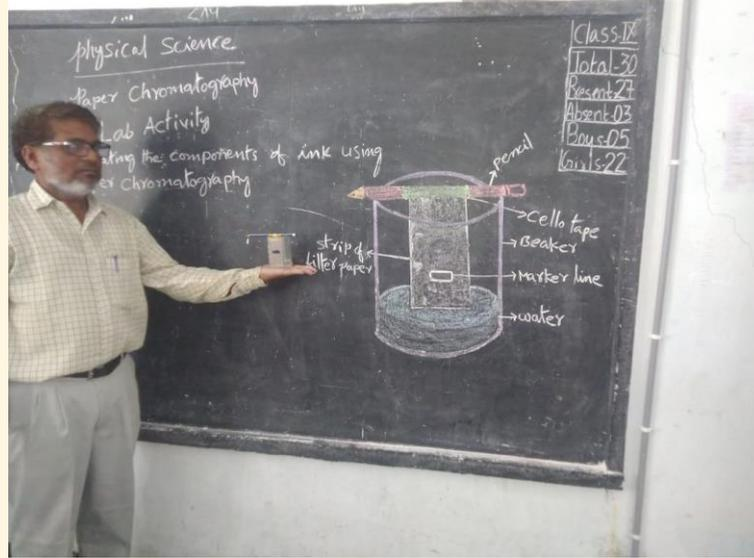 Physical Science
Paper Chromatography
Lab Activity
the components of ink using
Chromatography
Class-IX
Total-30
Present-27
Absent-03
Boys-05
Girls-22
pencil
Cello tape
Beaker
strip of
filter paper
Marker line
water